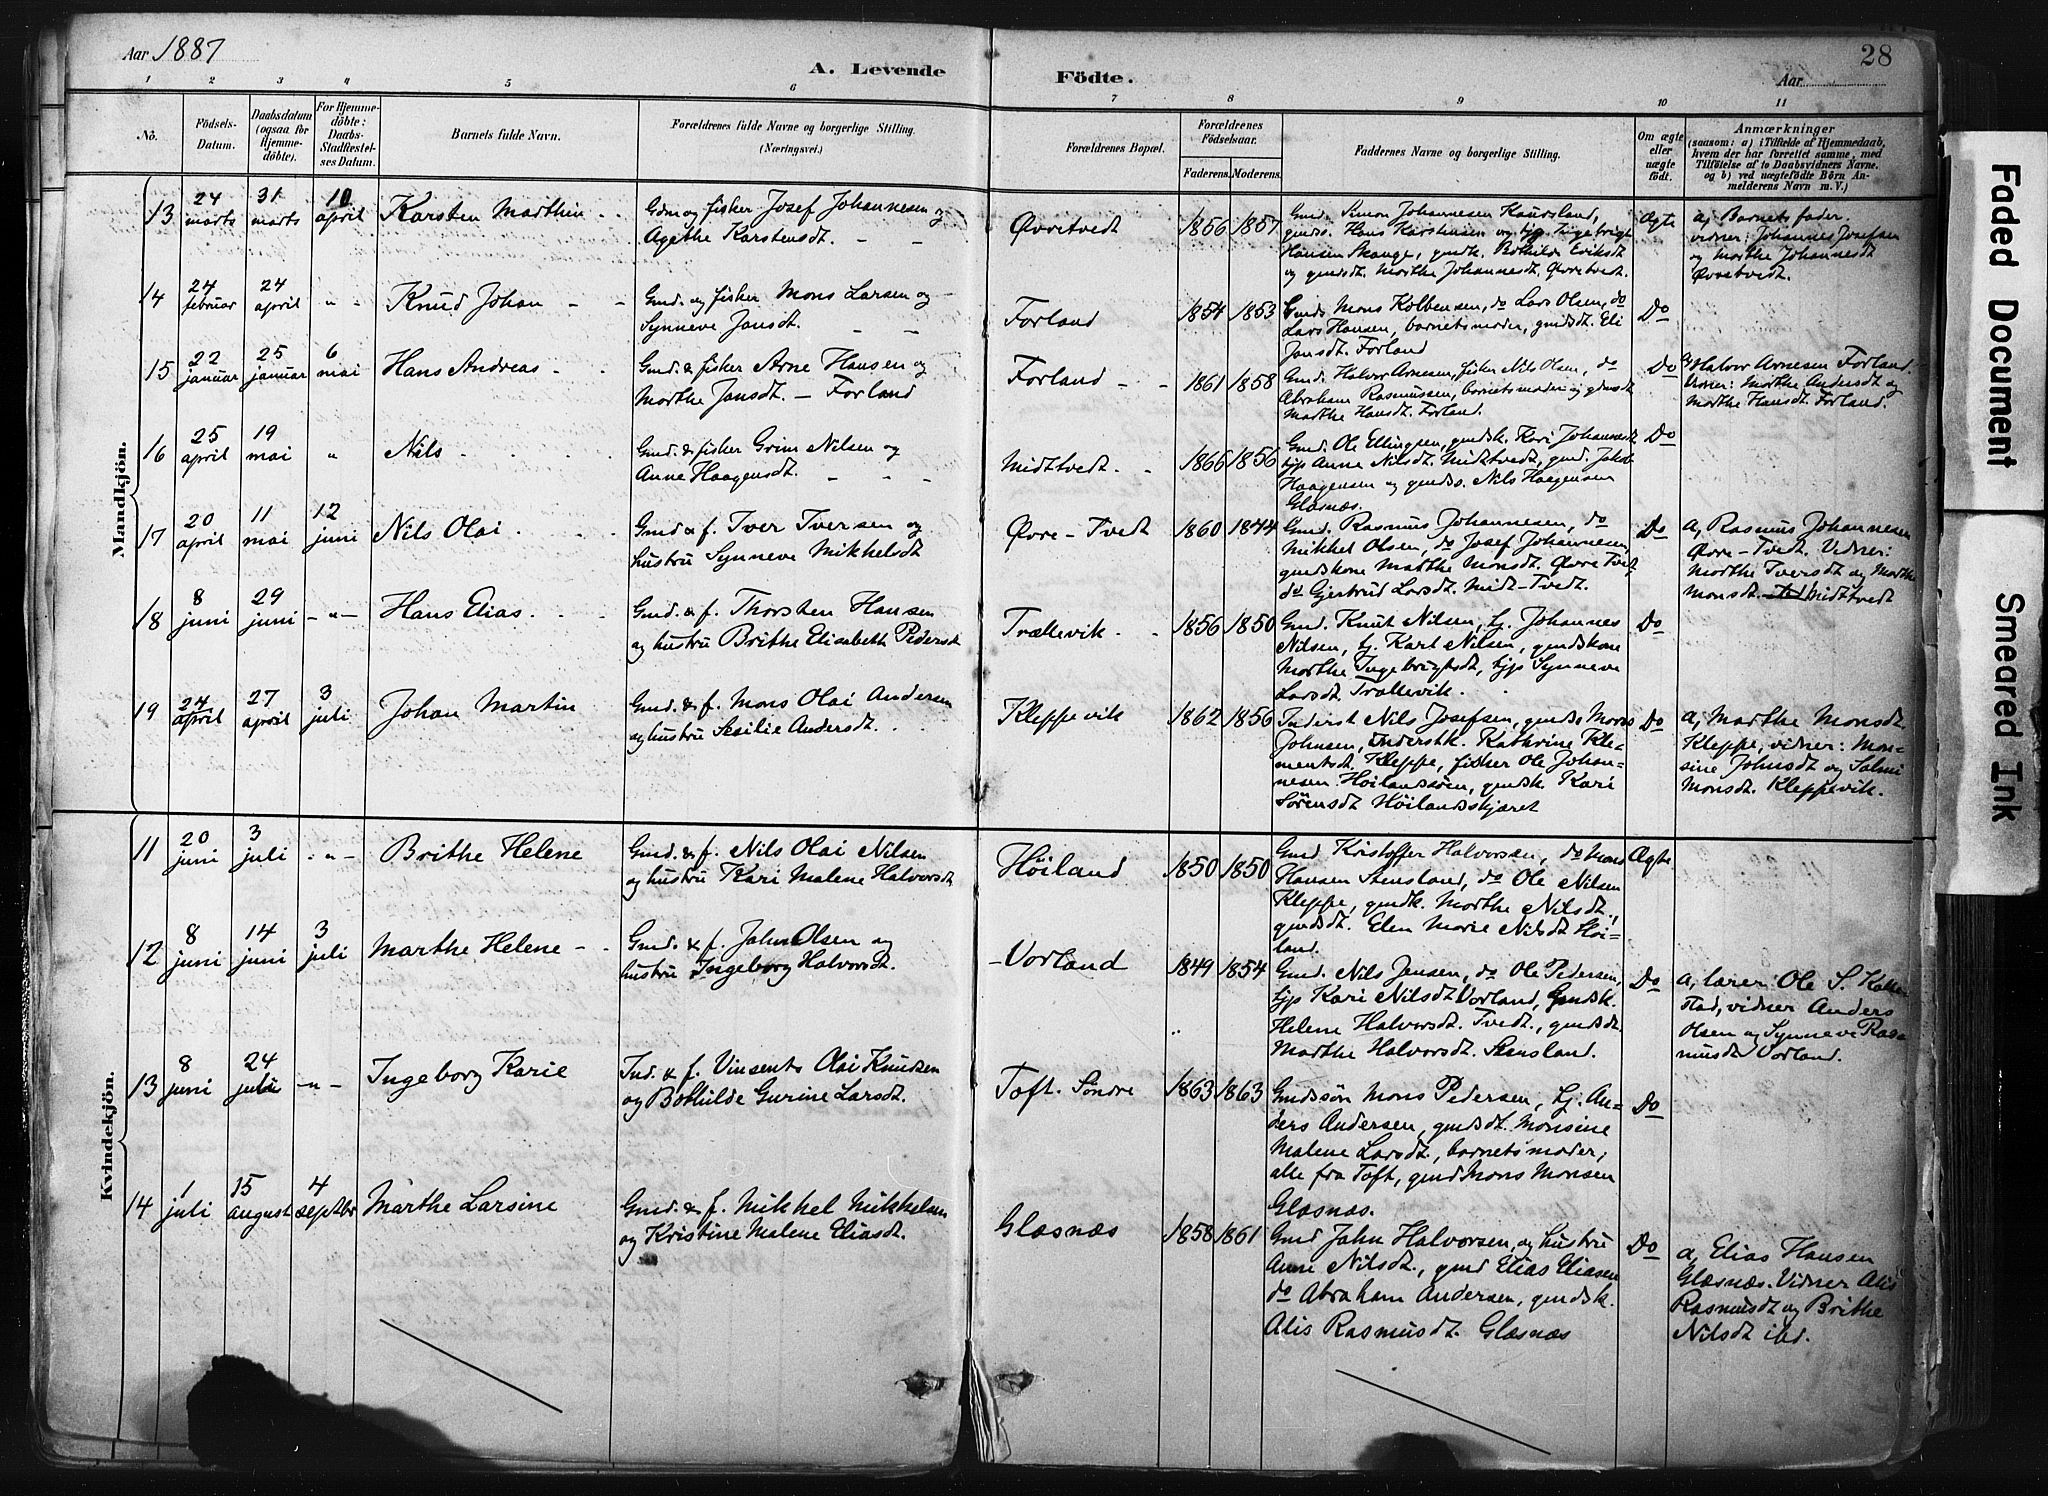 Aar 1887
A. Levende
Födte.
Aar
28
1 2 3 4 5 6 7 8 9 10 11
No.
Födsels-
Datum.
Daabsdatum
(ogsaa for
Hjemme-
döbte).
For Hjemme-
döbte:
Daabs-
Stadfæstel-
ses Datum.
Barnets fulde Navn.
Forældrenes fulde Navne og borgerlige Stilling.
(Næringsvei.)
Forældrenes Bopæl.
Forældrenes
Födselsaar.
Faderens. Moderens.
Faddernes Navne og borgerlige Stilling.
Om ægte
eller
uægte
födt.
Anmærkninger
(saasom: a) i Tilfælde af Hjemmedaab,
hvem der har forrettet samme, med
Tilföielse af to Daabsvidners Navne.
og b) ved uægtefödte Börn An-
melderens Navn m. V.)
Mandkjön.
13
24
marts
31
marts
10
april
Karsten Marthin
Gdm og fisker Josef Johannesen og
Agathe Karstensdt.
Øvretvedt
1856 1857
Gmd. Simon Johannesen Kaursland,
gmds. Hans Karstensen og tjp Ingebrigt
Hansen Skauge, gmdk. Bothilde Eriksdt
og gmdsdt. Marthe Johannesdt. Øvretvedt.
Ægte
a, Barnets fader.
vidner: Johannes Josefsen
og Marthe Johannesdt
Øvretvedt.
14
24
februar
24
april
" "
Knud Johan
Gmd. og fisker Mons Larsen og
Synneve Jansdt.
Forland
1854 1853
Gmds Mons Kolbensen, do Lars Olsen, do
Lars Hansen, barnets moder, gmdsdt. Eli
Jansdt. Forland
Do
15
22
januar
25
januar
6
mai
Hans Andreas
Gmd. & fisker Arne Hansen og
Marthe Jansdt. – Forland
Forland
1861 1858
Gmd. Halvor Arnesen, fisker Nils Olsen, do
Abraham Rasmussen, barnets moder og gmdsdt
Marthe Hansdt. Forland.
Do
a, Halvor Arnesen Forland.
Vidner: Marthe Andersdt og
Marthe Hansdt. Forland.
16
25
april
19
mai
"
Nils
Gmd. & fisker Grim Nilsen og
Anne Haagensdt.
Midttvedt.
1866 1856
Gmd. Ole Ellingsen, gmdsk. Kari Johannesdt
tjp Anne Nilsdt. Midttvedt, gmd. Jakob
Haagensen og gmdss. Nils Haagensen
Glæsnæs.
Do
17
20
april
11
mai
12
juni
Nils Olai
Gmd & f. Iver Iversen og
hustru Synneve Mikkelsdt
Øvre-Tvedt
1860 1844
Gmd. Rasmus Johannesen, do
Mikkel Olsen, do Josef Johannesen,
gmdskone Marthe Monsdt. Øvre Tvedt,
do Gjertrud Larsdt. Midt-Tvedt.
Do
a, Rasmus Johannesen
Øvre-Tvedt. Vidner:
Marthe Iversdt og Marthe
Monsdt. Midttvedt
18
8
juni
29
juni
-"-
Hans Elias
Gmd. & f. Thorsten Hansen
og hustru Brithe Elisabeth Pedersdt
Trællevik
1856 1850
Gmd. Knut Nilsen, tj. Johannes
Nilsen, tj. Karl Nilsen, gmdskone
Marthe Ingebrigtsdt, tjp Synneve
Larsdt Trællevik.
Do
19
24
april
27
april
3
juli
Johan Martin
Gmd. & f. Mons Olai Andersen
og hustru Sesilie Andersdt.
Kleppevik
1862 1856
Inderst Nils Josefsen, gmds. Mons
Johnsen, Inderstk. Kathrine Kle-
mentsdt. Kleppe, fisker Ole Johan-
nesen Höilandssöen, gmdsk. Kari
Sørensdt Höilandsskjæret
Do
a, Marthe Monsdt.
Kleppe, vidner: Mon-
sine Johnsdt og Salmi
Monsdt. Kleppevik.
Kvindekjön.
11
20
juni
3
juli
-"-
Brithe Helene
Gmd. & f. Nils Olai Nilsen
og hustru Kari Malene Halvorsdt
Höiland
1850 1850
Gmd Kristoffer Halvorsen, do Mons
Hansen Stensland, do Ole Nilsen
Kleppe, gmdk. Marthe Nilsdt.,
gmdsdt. Elen Marie Nilsdt Höi-
land.
Ægte
12
8
juni
14
juni
3
juli
Marthe Helene
Gmd. & f. John Olsen og
hustru Ingeborg Halvorsdt.
Vorland
1849 1854
Gmd. Nils Jansen, do Ole Pedersen,
tjp Kari Nilsdt Vorland, Gmdsk.
Helene Halvorsdt. Tvedt., gmdsdt
Marthe Halvorsdt. Stensland.
Do
a, lærer Ole S.
stad, vidner Anders
Olsen og Synneve Ras-
musdt Vorland.
13
8
juni
24
juli
-"-
Ingeborg Karie
Ind. & f. Vinsents Olai Knudsen
og Bothilde Gurine Larsdt.
Toft. Söndre
1863 1863
Gmdssön Mons Pedersen, tj. An-
ders Andersen, gmdsdt. Monsine
Malene Larsdt, barnets moder,
alle fra Toft, gmd Mons Monsen
Glæsnæs.
Do
14
1
juli
15
august
4
septbr
Marthe Larsine
Gmd. & f. Mikkel Mikkelsen
og Kristine Malene Eliasdt.
Glæsnæs
1858 1861
Gmd John Halvorsen, og hustru
Anne Nilsdt., gmd Elias Eliasen
do Abraham Andersen, gmdsk.
Alis Rasmusdt. Glæsnæs
Do
a, Elias Hansen
Glæsnæs. Vidner Alis
Rasmusdt og Brithe
Nilsdt ibd.
Faded Document
Smeared Ink